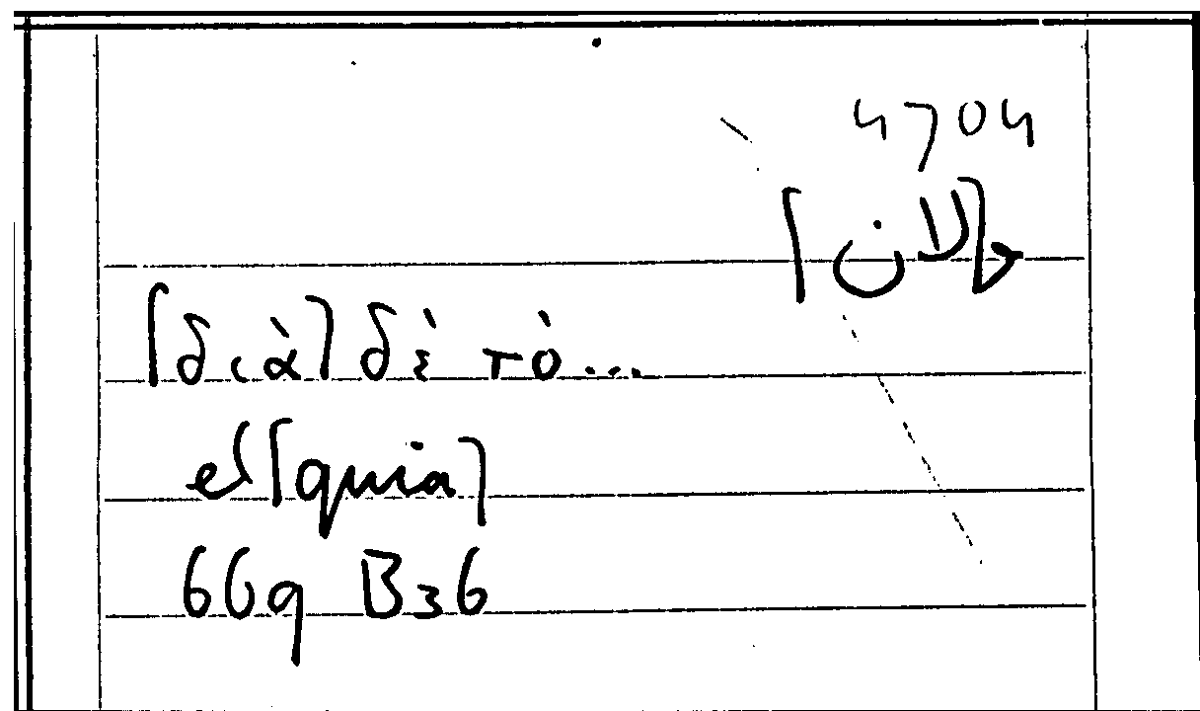 4704
و[لان]
[διὰ] δὲ τὸ...
et [quia]
669 B36